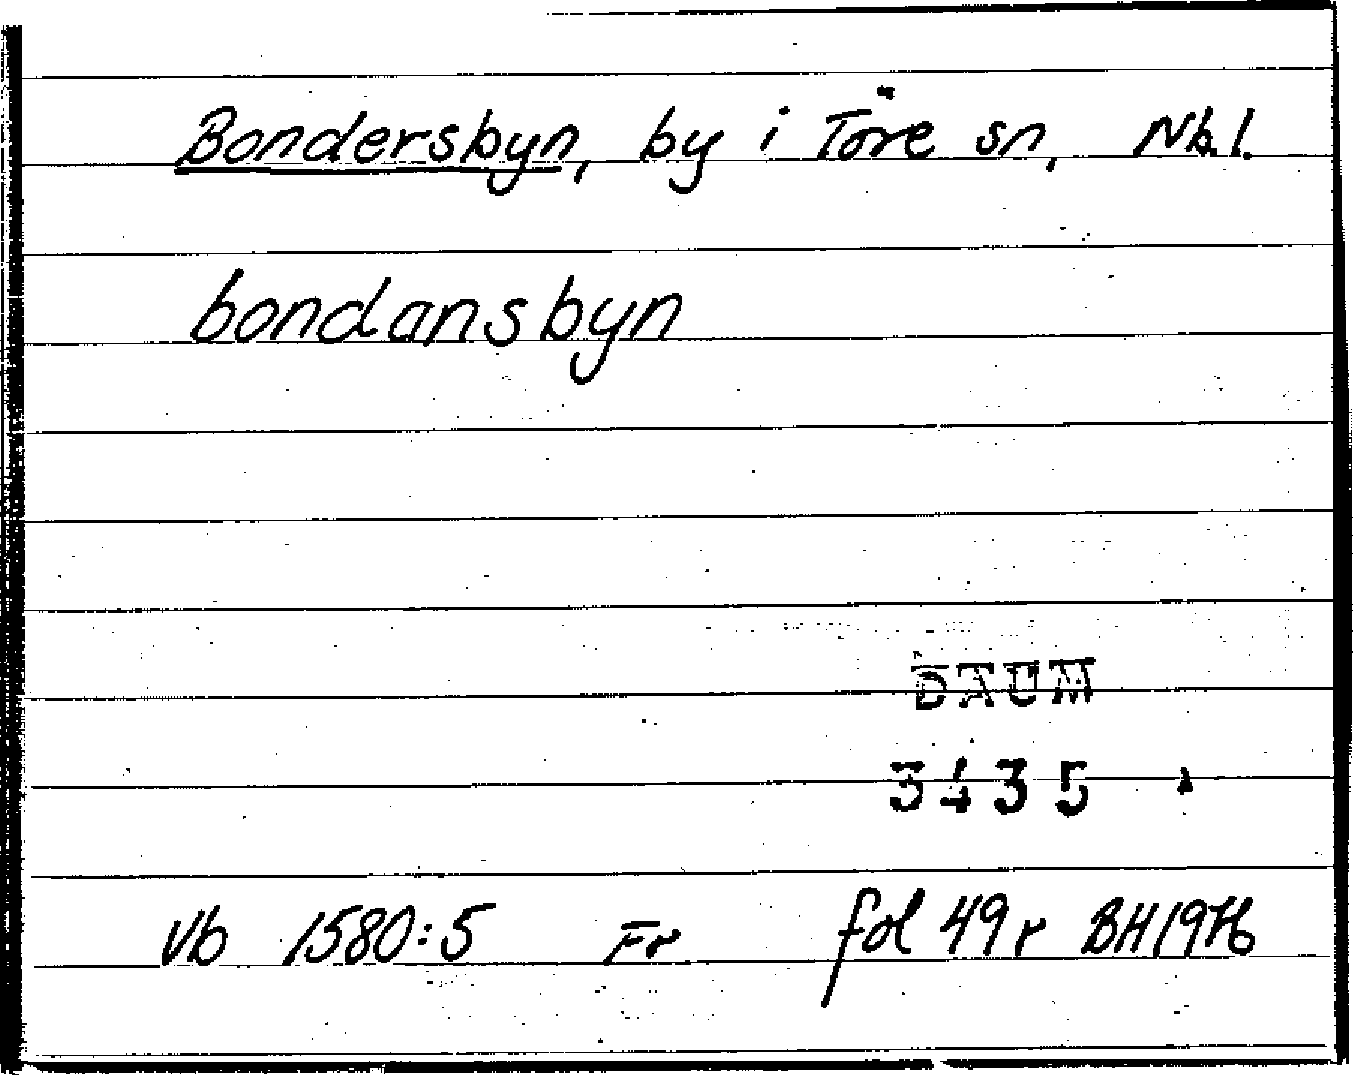 Bondersbyn, by i Töre sn, Nb.l.
bondansbyn
DAUM
3435
Vb 1580:5 Fr fol 49 r BH 1976